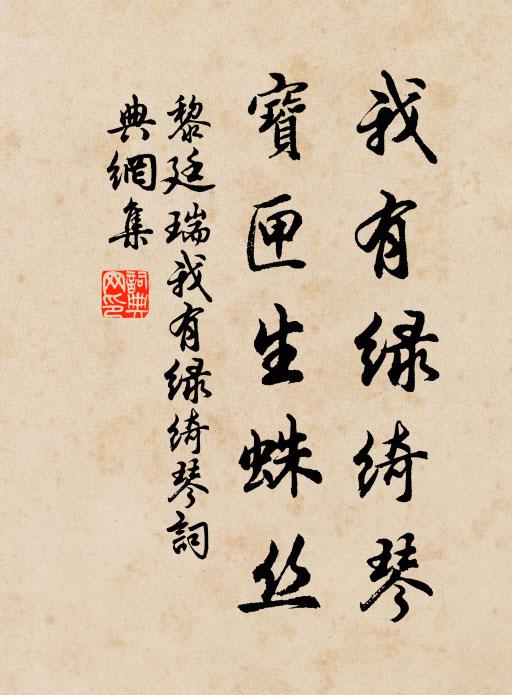 我有绿绮琴
寶匣生蛛丝
黎廷瑞我有绿绮琴詞
典網集
詞典
网印